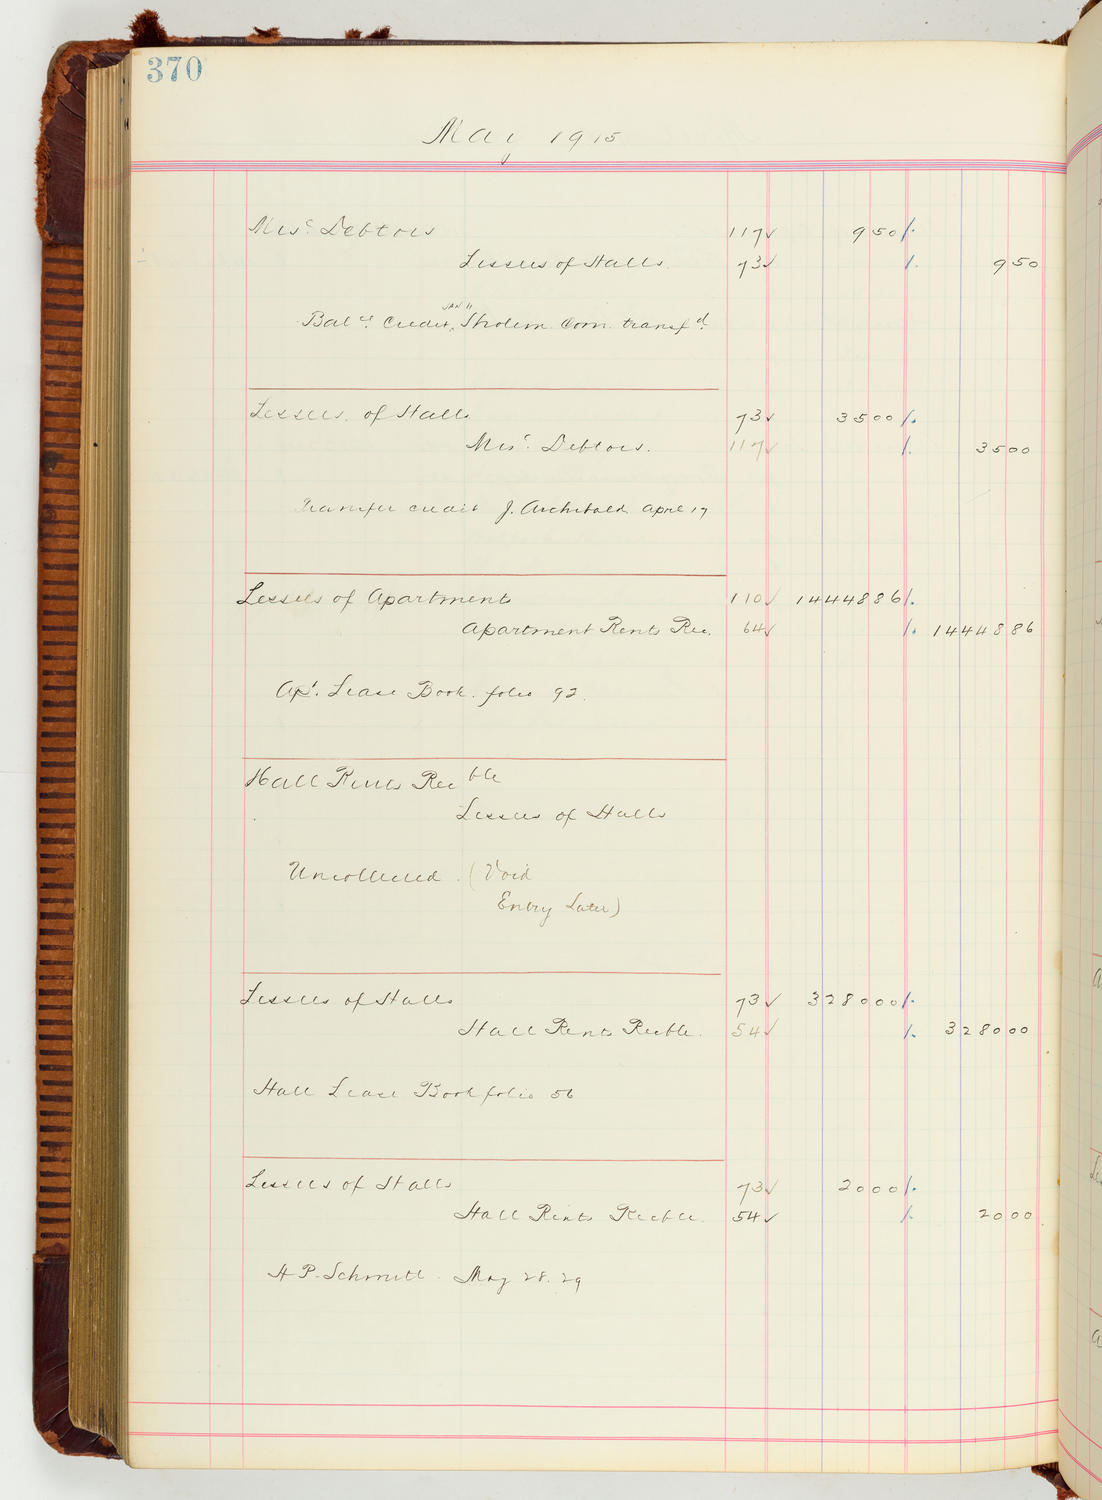 370
May 1915
Misc. Debtors 117✓ 950/.
Lessees of Halls 73✓ /. 950
JAN 11
Balce. Credit, Com. transfd.
Lessees of Halls 73✓ 3500/.
Misc. Debtors. 117✓ /. 3500
Transfer credit J. Archibald April 17
Lessees of Apartments 110✓ 1444886/.
Apartment Rents Rec. 64✓ /. 1444886
Apt. Lease Book. folio 92.
Hall Rents Recble
Lessees of Halls
Uncollected. (Void
Entry Later)
Lessees of Halls 73✓ 328000/.
Hall Rents Recble. 54✓ /. 328000
Hall Lease Book folio 56
Lessees of Halls 73✓ 2000/.
Hall Rents Recble. 54✓ /. 2000
H P. Schmitt. May 28. 29